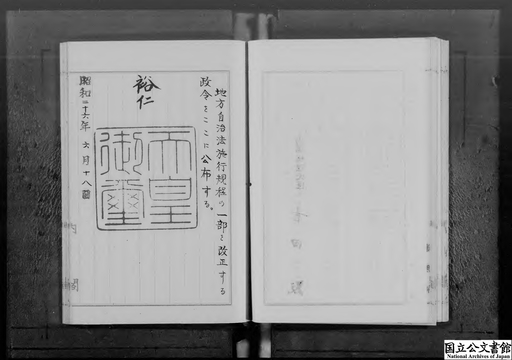 地方自治法施行規程の一部を改正する
政令をここに公布する。
裕仁
天皇
御璽
昭和二十六年 六月十八日
内閣
国立公文書館
National Archives of Japan